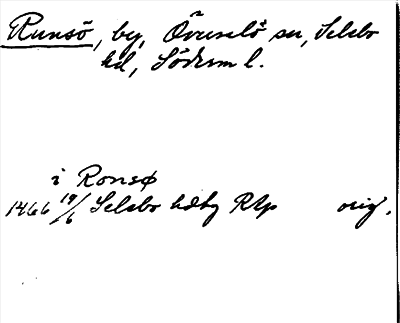 Runsö, by, Överselö sn, Selebo
hd, Söderm l.
i Ronsø
1466 19/6 Selebo hdbg RAp orig.